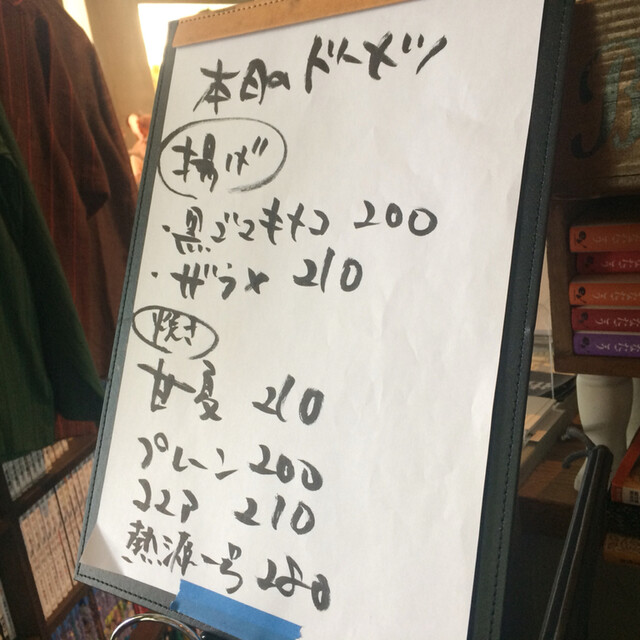 本日のドーナツ
揚げ
・黒ごまキナコ 200
・ザラメ 210
焼き
甘夏 210
プレーン 200
ココア 210
熱源一号 280